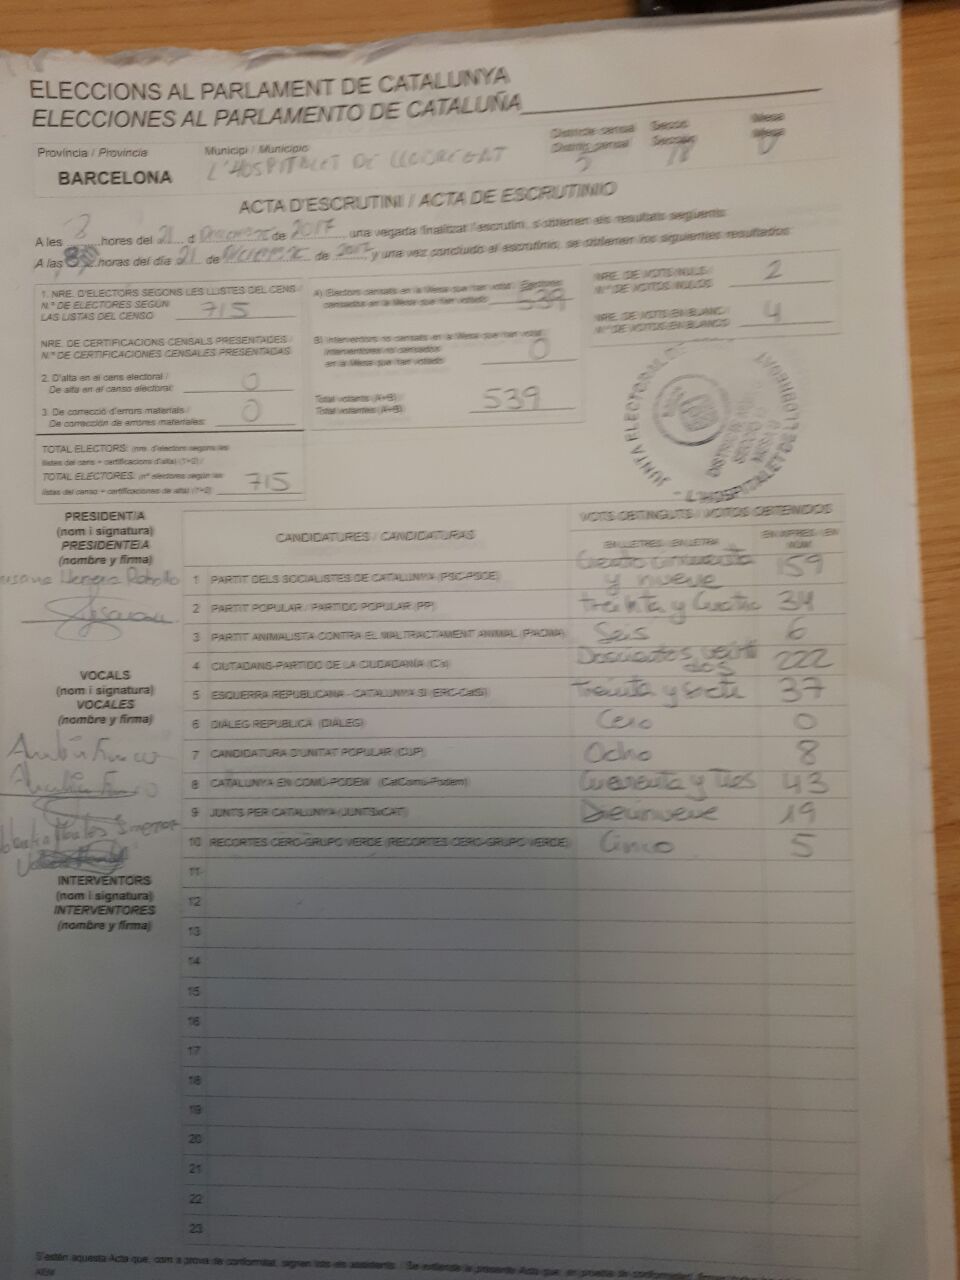 ELECCIONS AL PARLAMENT DE CATALUNYA
ELECCIONES AL PARLAMENTO DE CATALUÑA
Província / Provincia
Municipi / Municipio
Districte censal Secció Mesa
Distrito censal Sección Mesa
BARCELONA
L'HOSPITALET DE LLOBREGAT
5 18 U
ACTA D'ESCRUTINI / ACTA DE ESCRUTINIO
A les 8 hores del 21 d de 2017 una vegada finalitzat l'escrutini, s'obtenen els resultats següents:
A las 8 horas del día 21 de Diciembre de 2017, y una vez concluido el escrutinio, se obtienen los siguientes resultados:
1. NRE. D'ELECTORS SEGONS LES LLISTES DEL CENS /
N.º DE ELECTORES SEGÚN
LAS LISTAS DEL CENSO 715
NRE. DE CERTIFICACIONS CENSALS PRESENTADES /
N.º DE CERTIFICACIONES CENSALES PRESENTADAS
2. D'alta en el cens electoral /
De alta en el censo electoral: 0
3. De correcció d'errors materials /
De corrección de errores materiales: 0
TOTAL ELECTORS: (nre. d'electors segons les
llistes del cens + certificacions d'alta) (1+2) /
TOTAL ELECTORES: (nº electores según las
listas del censo + certificaciones de alta) (1+2) 715
A) Electors censats en la Mesa que han votat / Electores
censados en la Mesa que han votado 539
B) Interventors no censats en la Mesa que han votat
Interventores no censados
en la Mesa que han votado 0
Total votants (A+B) /
Total votantes (A+B) 539
NRE. DE VOTS NULS /
N.º DE VOTOS NULOS 2
NRE. DE VOTS EN BLANC /
N.º DE VOTOS EN BLANCO 4
JUNTA ELECTORAL DE
L'HOSPITALET DE LLOBREGAT
PRESIDENT/A
(nom i signatura)
PRESIDENTE/A
(nombre y firma)
VOCALS
(nom i signatura)
VOCALES
(nombre y firma)
INTERVENTORS
(nom i signatura)
INTERVENTORES
(nombre y firma)
CANDIDATURES / CANDIDATURAS
VOTS OBTINGUTS / VOTOS OBTENIDOS
EN LLETRES / EN LETRA
EN XIFRES / EN
NÚM.
1 PARTIT DELS SOCIALISTES DE CATALUNYA (PSC-PSOE) Ciento cincuenta y nueve 159
2 PARTIT POPULAR / PARTIDO POPULAR (PP) treinta y cuatro 34
3 PARTIT ANIMALISTA CONTRA EL MALTRACTAMENT ANIMAL (PACMA) Seis 6
4 CIUTADANS-PARTIDO DE LA CIUDADANÍA (C's) Doscientos veinti dos 222
5 ESQUERRA REPUBLICANA - CATALUNYA SÍ (ERC-CatSí) Treinta y siete 37
6 DIÀLEG REPUBLICÀ (DIÀLEG) Cero 0
7 CANDIDATURA D'UNITAT POPULAR (CUP) Ocho 8
8 CATALUNYA EN COMÚ-PODEM (CatComú-Podem) Cuarenta y Tres 43
9 JUNTS PER CATALUNYA (JUNTSxCAT) Diecinueve 19
10 RECORTES CERO-GRUPO VERDE (RECORTES CERO-GRUPO VERDE) Cinco 5
11
12
13
14
15
16
17
18
19
20
21
22
23
S'estén aquesta Acta que, com a prova de conformitat, signen tots els assistents. / Se extiende la presente Acta que, en prueba de conformidad, firman